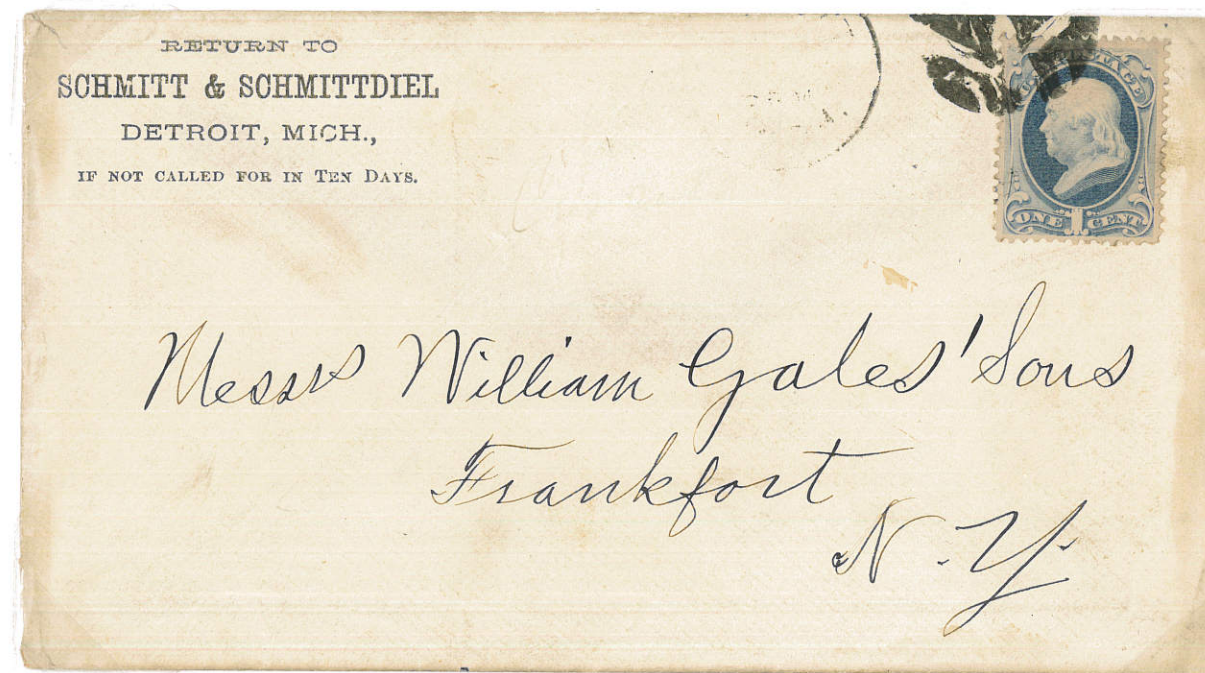 RETURN TO
SCHMITT & SCHMITTDIEL
DETROIT, MICH.,
IF NOT CALLED FOR IN TEN DAYS.
POSTAGE
ONE 1 CENT
Messrs William Gales' Sons
Frankfort
N.Y.